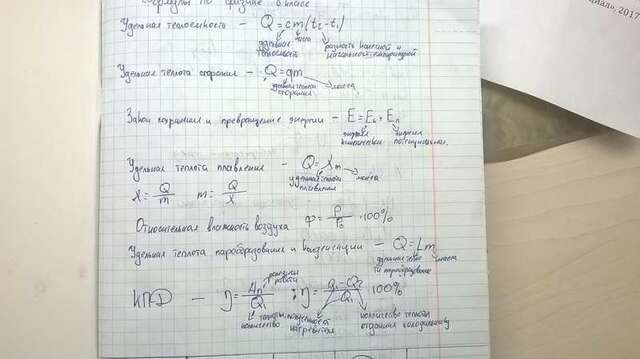 Формулы по физике 8 класс
Удельная теплоёмкость – Q = cm(t₂ - t₁)
удельная теплоёмкость масса разность конечной и начальной температурой
Удельная теплота сгорания – Q = qm
удельная теплота сгорания масса
Закон сохранения и превращение энергии – E = Eк + Eп
энергия кинетическая энергия потенциальная
Удельная теплота плавления – Q = λm
удельная теплота плавления масса
λ = Q/m m = Q/λ
Относительная влажность воздуха φ = ρ/ρ₀ · 100%
Удельная теплота парообразования и конденсации – Q = Lm
удельная парообразования масса
полезная работа
КПД – η = Aп/Q₁ ; η = Q₁-Q₂/Q₁ 100%
количество теплоты, нагревателя
количество теплоты отданная холодильнику
, 2017